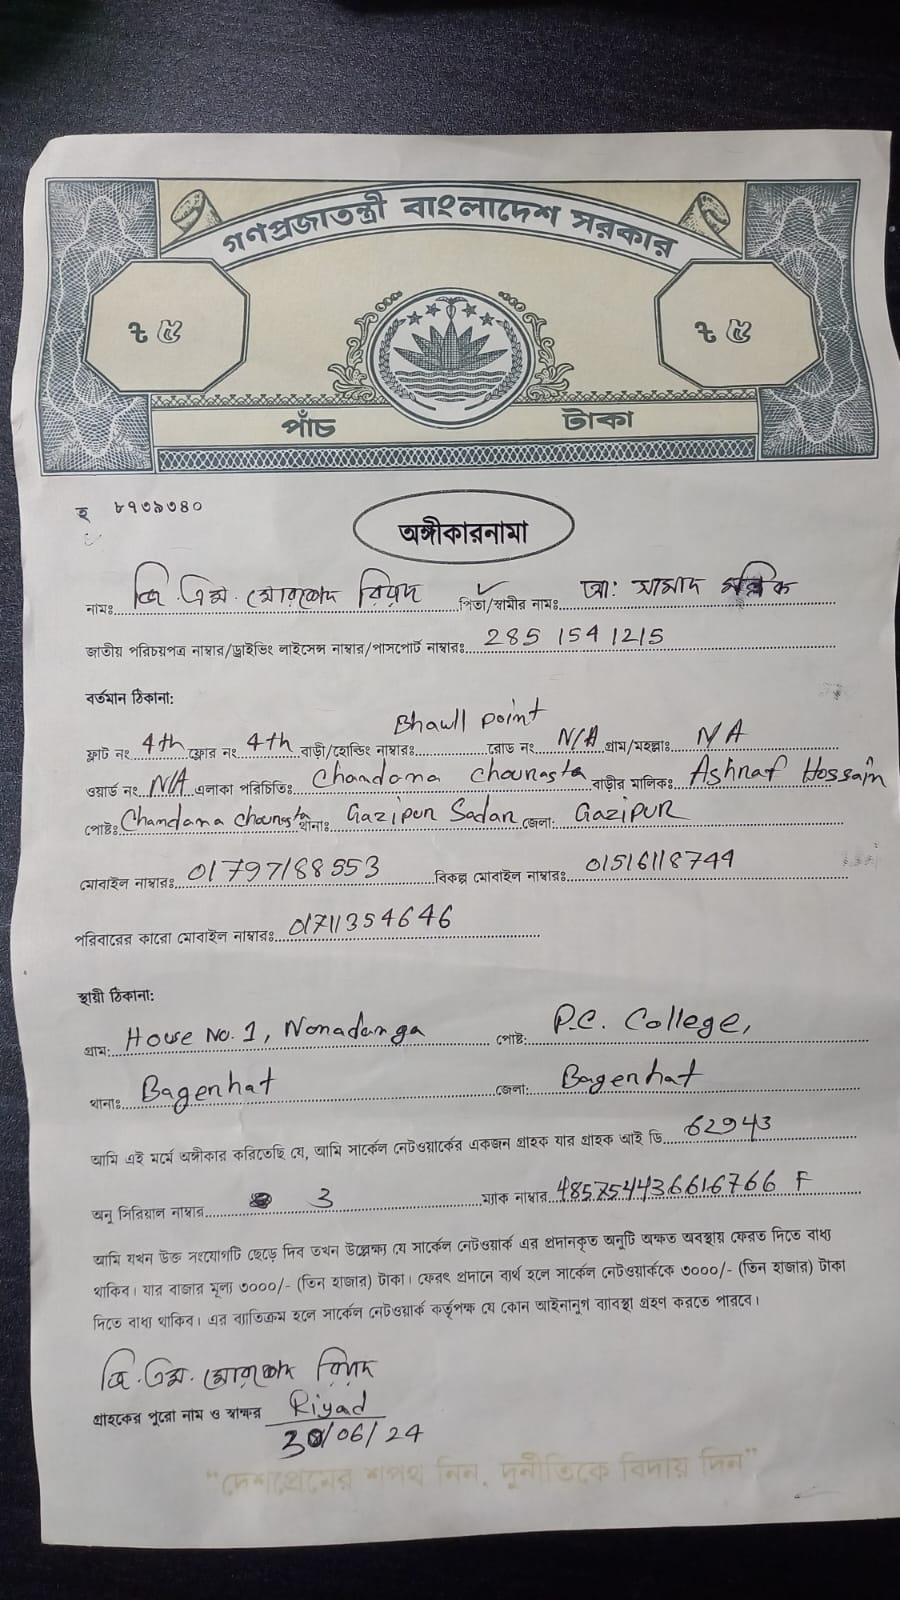 গণপ্রজাতন্ত্রী বাংলাদেশ সরকার
৳ ৫ ৳ ৫
পাঁচ টাকা
হ ৮৭৩৯৩৪০
অঙ্গীকারনামা
নামঃ জি. এম. মোরশেদ রিয়াদ পিতা/স্বামীর নামঃ আঃ সামাদ মল্লিক
জাতীয় পরিচয়পত্র নাম্বার/ড্রাইভিং লাইসেন্স নাম্বার/পাসপোর্ট নাম্বারঃ 285 154 1215
বর্তমান ঠিকানা:
ফ্লাট নং 4th ফ্লোর নং 4th বাড়ী/হোল্ডিং নাম্বারঃ Bhawll point রোড নং N/A গ্রাম/মহল্লাঃ N/A
ওয়ার্ড নং N/A এলাকা পরিচিতিঃ Chandona Chourasta বাড়ীর মালিকঃ Ashraf Hossain
পোষ্টঃ Chandana Chourasta থানাঃ Gazipur Sadar জেলা: Gazipur
মোবাইল নাম্বারঃ 01797188553 বিকল্প মোবাইল নাম্বারঃ 01516118744
পরিবারের কারো মোবাইল নাম্বারঃ 01711354646
স্থায়ী ঠিকানা:
গ্রাম: House No. 1, Nonadanga পোষ্ট: P.C. College,
থানাঃ Bagerhat জেলা: Bagerhat
আমি এই মর্মে অঙ্গীকার করিতেছি যে, আমি সার্কেল নেটওয়ার্কের একজন গ্রাহক যার গ্রাহক আই ডি 62943
অনু সিরিয়াল নাম্বার 3 ম্যাক নাম্বার 485754436616766 F
আমি যখন উক্ত সংযোগটি ছেড়ে দিব তখন উল্লেক্ষ্য যে সার্কেল নেটওয়ার্ক এর প্রদানকৃত অনুটি অক্ষত অবস্থায় ফেরত দিতে বাধ্য
থাকিব। যার বাজার মূল্য ৩০০০/- (তিন হাজার) টাকা। ফেরৎ প্রদানে ব্যর্থ হলে সার্কেল নেটওয়ার্ককে ৩০০০/- (তিন হাজার) টাকা
দিতে বাধ্য থাকিব। এর ব্যতিক্রম হলে সার্কেল নেটওয়ার্ক কর্তৃপক্ষ যে কোন আইনানুগ ব্যাবস্থা গ্রহণ করতে পারবে।
জি. এম. মোরশেদ রিয়াদ
গ্রাহকের পুরো নাম ও স্বাক্ষর Riyad
30/06/24
"দেশপ্রেমের শপথ নিন, দুর্নীতিকে বিদায় দিন"